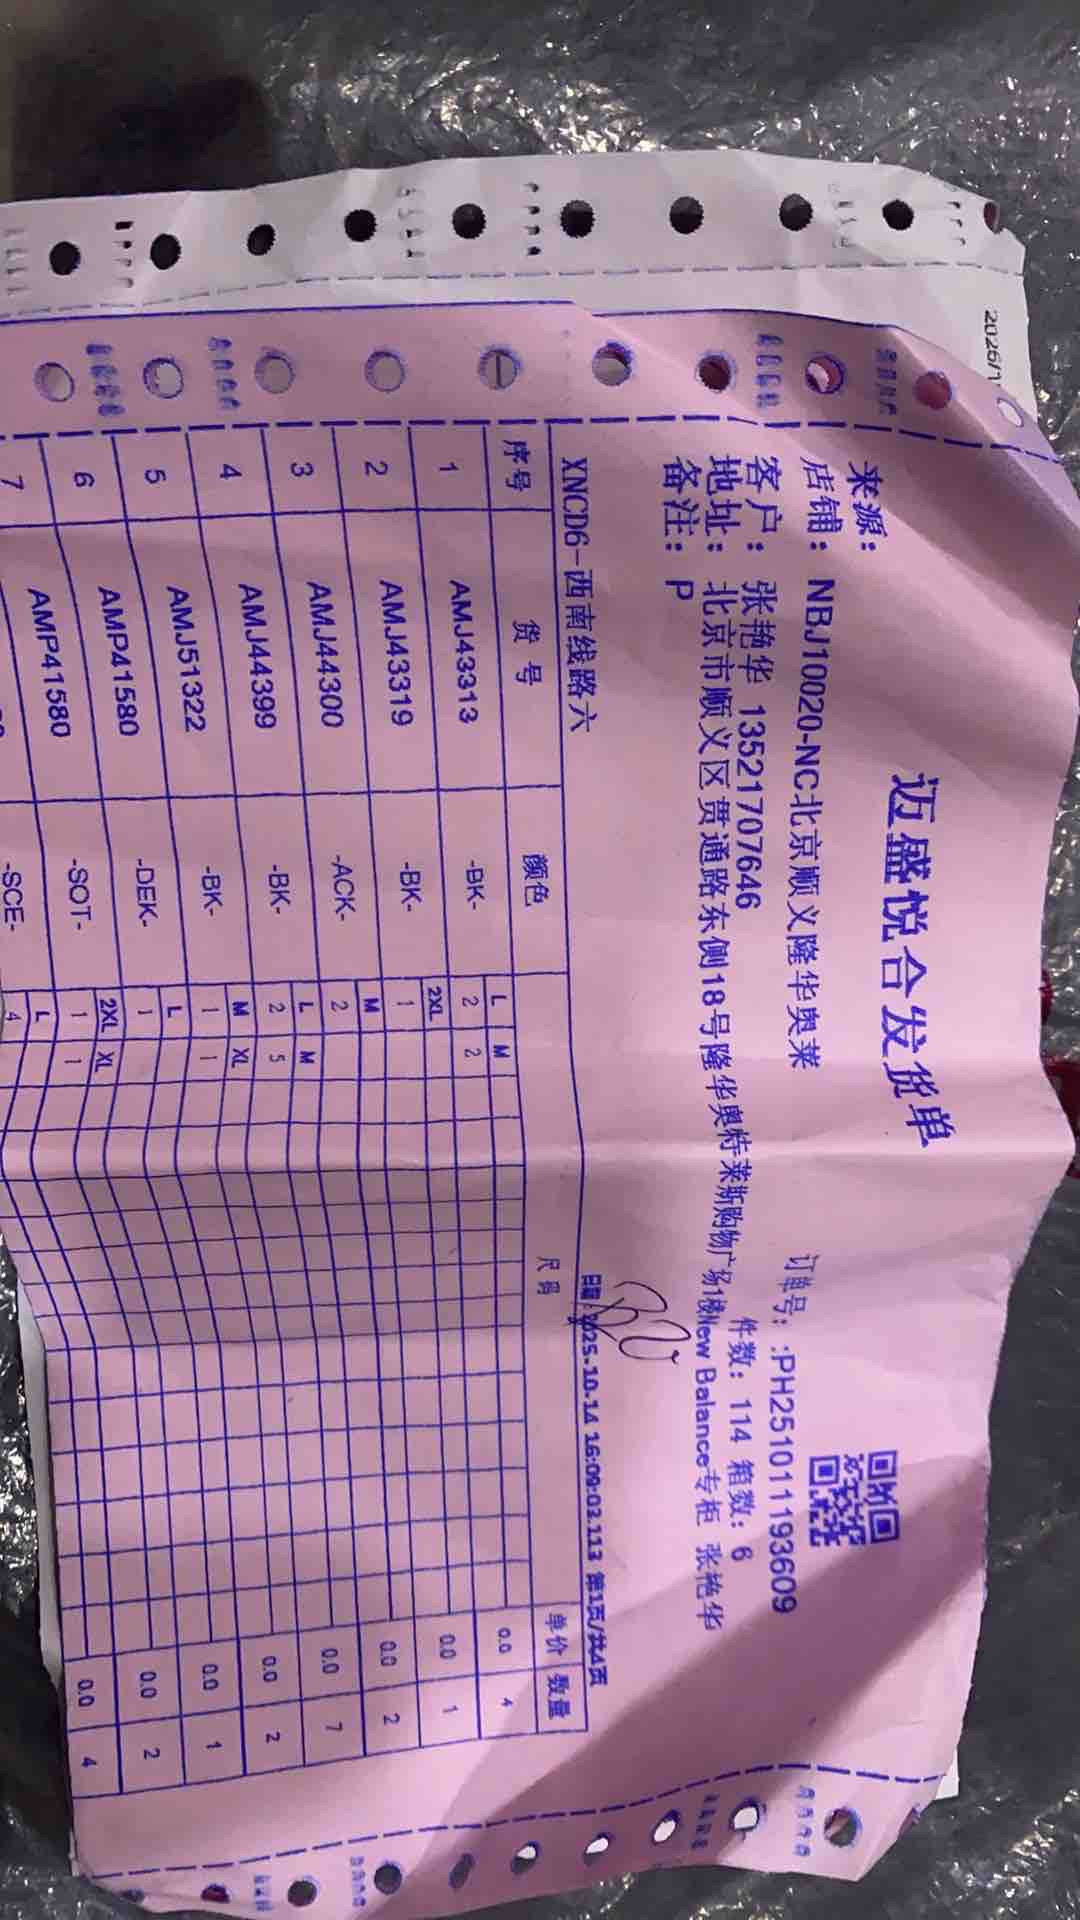 2026/1
迈盛悦合发货单
来源：
店铺： NBJ10020-NC北京顺义隆华奥莱 订单号：:PH251011193609
客户： 张艳华 13521707646 件数：114 箱数：6
地址： 北京市顺义区贯通路东侧18号隆华奥特莱斯购物广场1楼New Balance专柜 张艳华
备注： P
XNCD6-西南线路六 日期：2025-10-14 16:09:03.113 第1页/共4页
序号 货号 颜色 尺码 单价 数量
L M
1 AMJ43313 -BK- 2 2 0.0 4
2XL
2 AMJ43319 -BK- 1 0.0 1
M
3 AMJ44300 -ACK- 2 0.0 2
L M
4 AMJ44399 -BK- 2 5 0.0 7
M XL
5 AMJ51322 -BK- 1 1 0.0 2
L
6 AMP41580 -DEK- 1 0.0 1
2XL XL
7 AMP41580 -SOT- 1 1 0.0 2
L
-SCE- 4 0.0 4